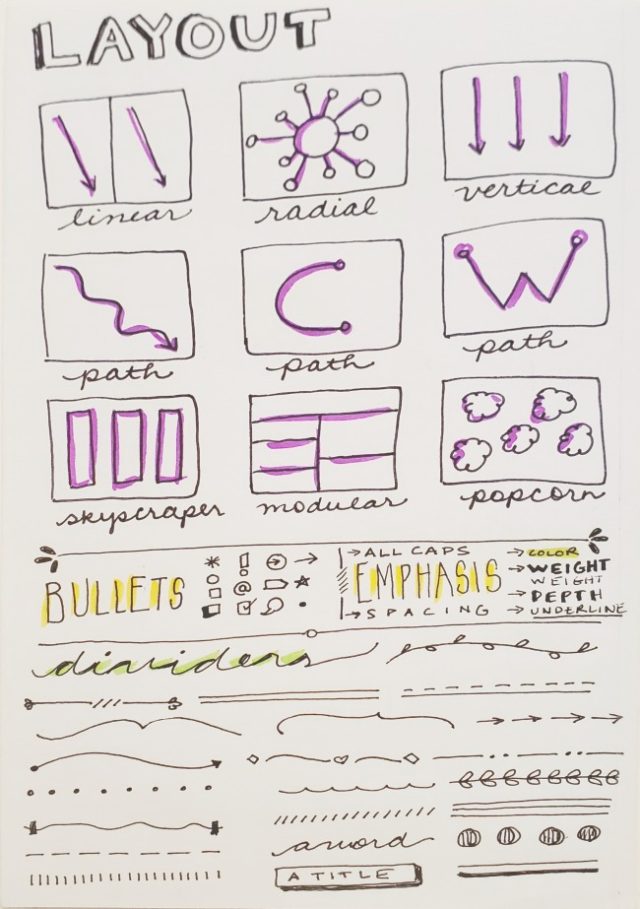 LAYOUT
linear radial vertical
path path path
skyscraper modular popcorn
BULLETS
EMPHASIS
→ALL CAPS
→SPACING
→COLOR
→WEIGHT
WEIGHT
→DEPTH
→UNDERLINE
dividers
a word
A TITLE